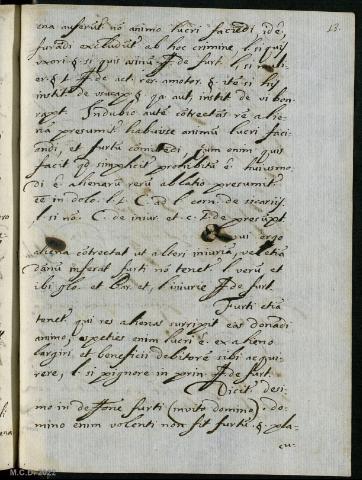 18.
ena auferũt nõ animo lucri faciẽdi, idẽ,
furãdi excludũt ab hoc crimine l. si quis
uxori §. si quis ff. de furt. l. si
er. §. ff. de act. rer. amotor. §. itẽ si
instit. de usucap. §. qa aut, instit. de vi bon.
rapt. In dubio autẽ cõtrectãs rẽ alie
nã presumit habuisse animũ lucri faci
endi, et furtũ cõmittẽdi nam omnis qui
facit qd simpliciter prohibitũ ẽ, huiusmo
di ẽ alienarũ rerũ ablatio presumit
ẽẽ in dolo. l. 1. C. ad l. corn. de sicariis
l. si nõ C. de iniur. et c. 1. de presũpt.
Qui ergo
aliena cõtrectat ut alteri iniuriã, vel etiã
dãnũ inferat furti nõ tenet. l. verũ et
ibi glo. et Bar. et l. iniurie ff. de furt.
Furti etiã
tenet qui res alienas surripit eas donãdi
animo, species enim lucri ẽ ex alieno
largiri, et beneficii debitorẽ sibi acqui
rere, l. si pignore in prin. ff. de furt.
Dicit desi
mo in deffõne furti (invito domino) do
mino enim volenti non fit furtũ §. pla-
cu-
M.C.D. 2022